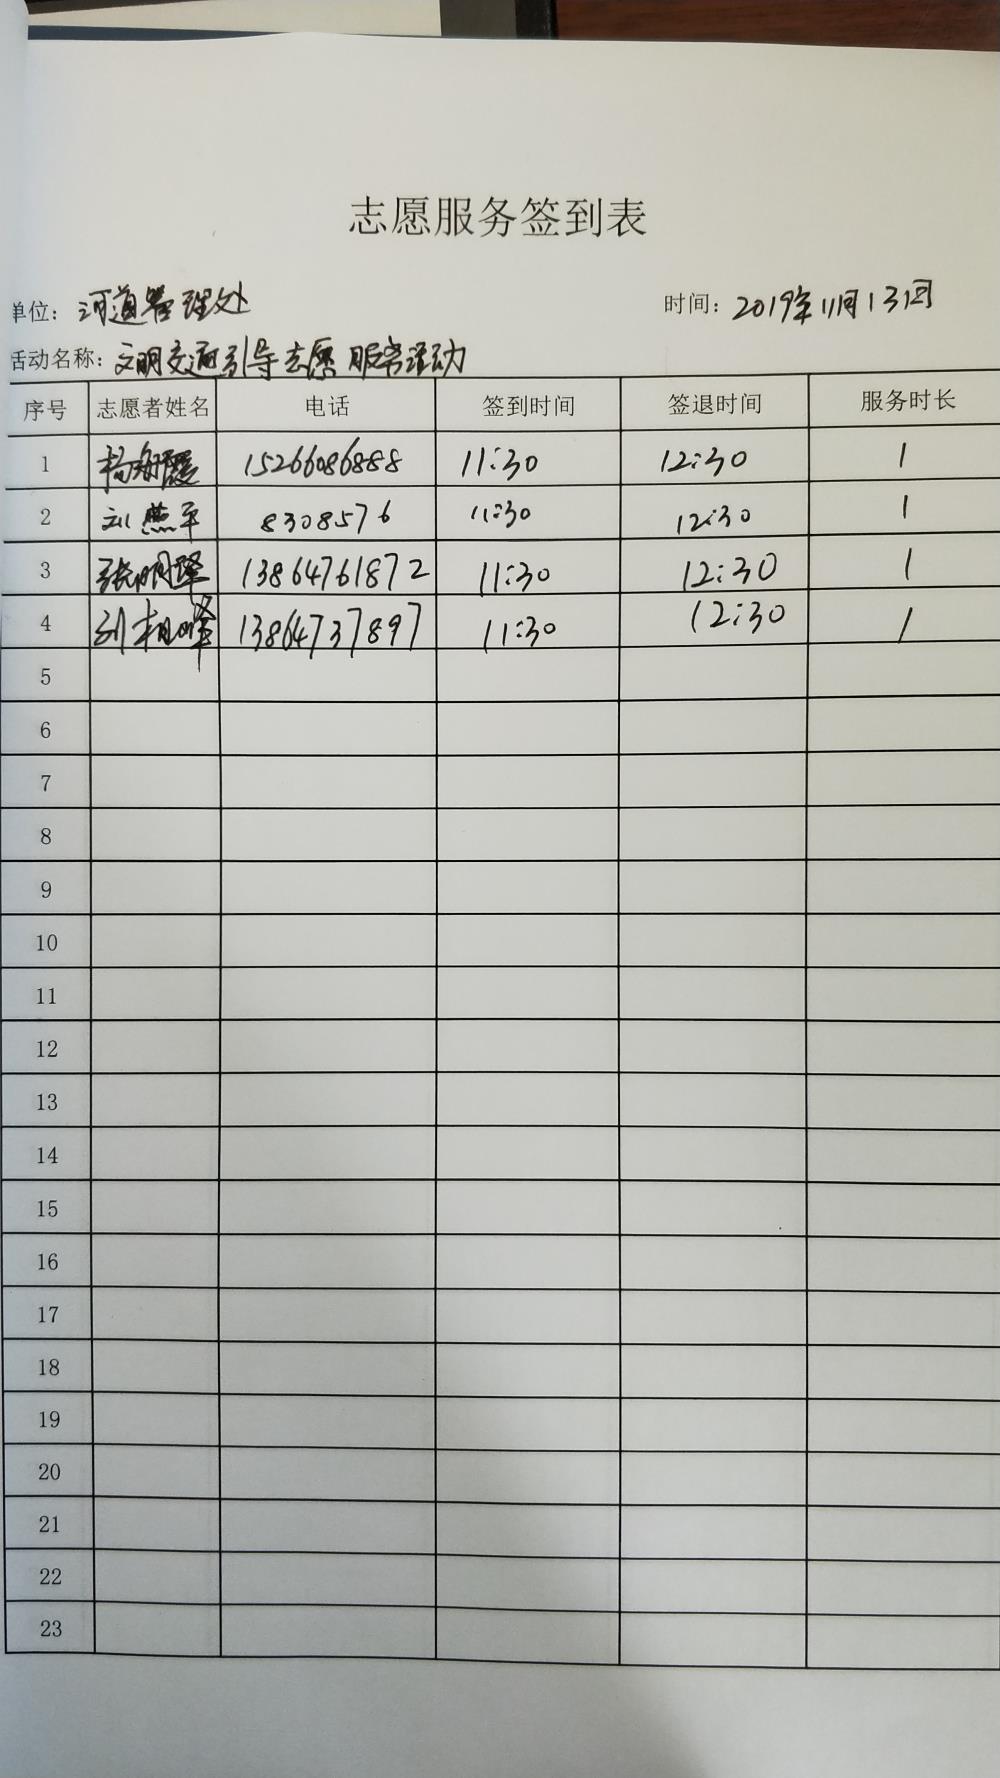 志愿服务签到表
单位：河道管理处 时间：2019年11月13日
活动名称：文明交通引导志愿服务活动
序号 志愿者姓名 电话 签到时间 签退时间 服务时长
1 15266086888 11:30 12:30 1
2 刘燕平 8308576 11:30 12:30 1
3 张明泽 13864761872 11:30 12:30 1
4 刘相峰 13864737897 11:30 12:30 1
5
6
7
8
9
10
11
12
13
14
15
16
17
18
19
20
21
22
23